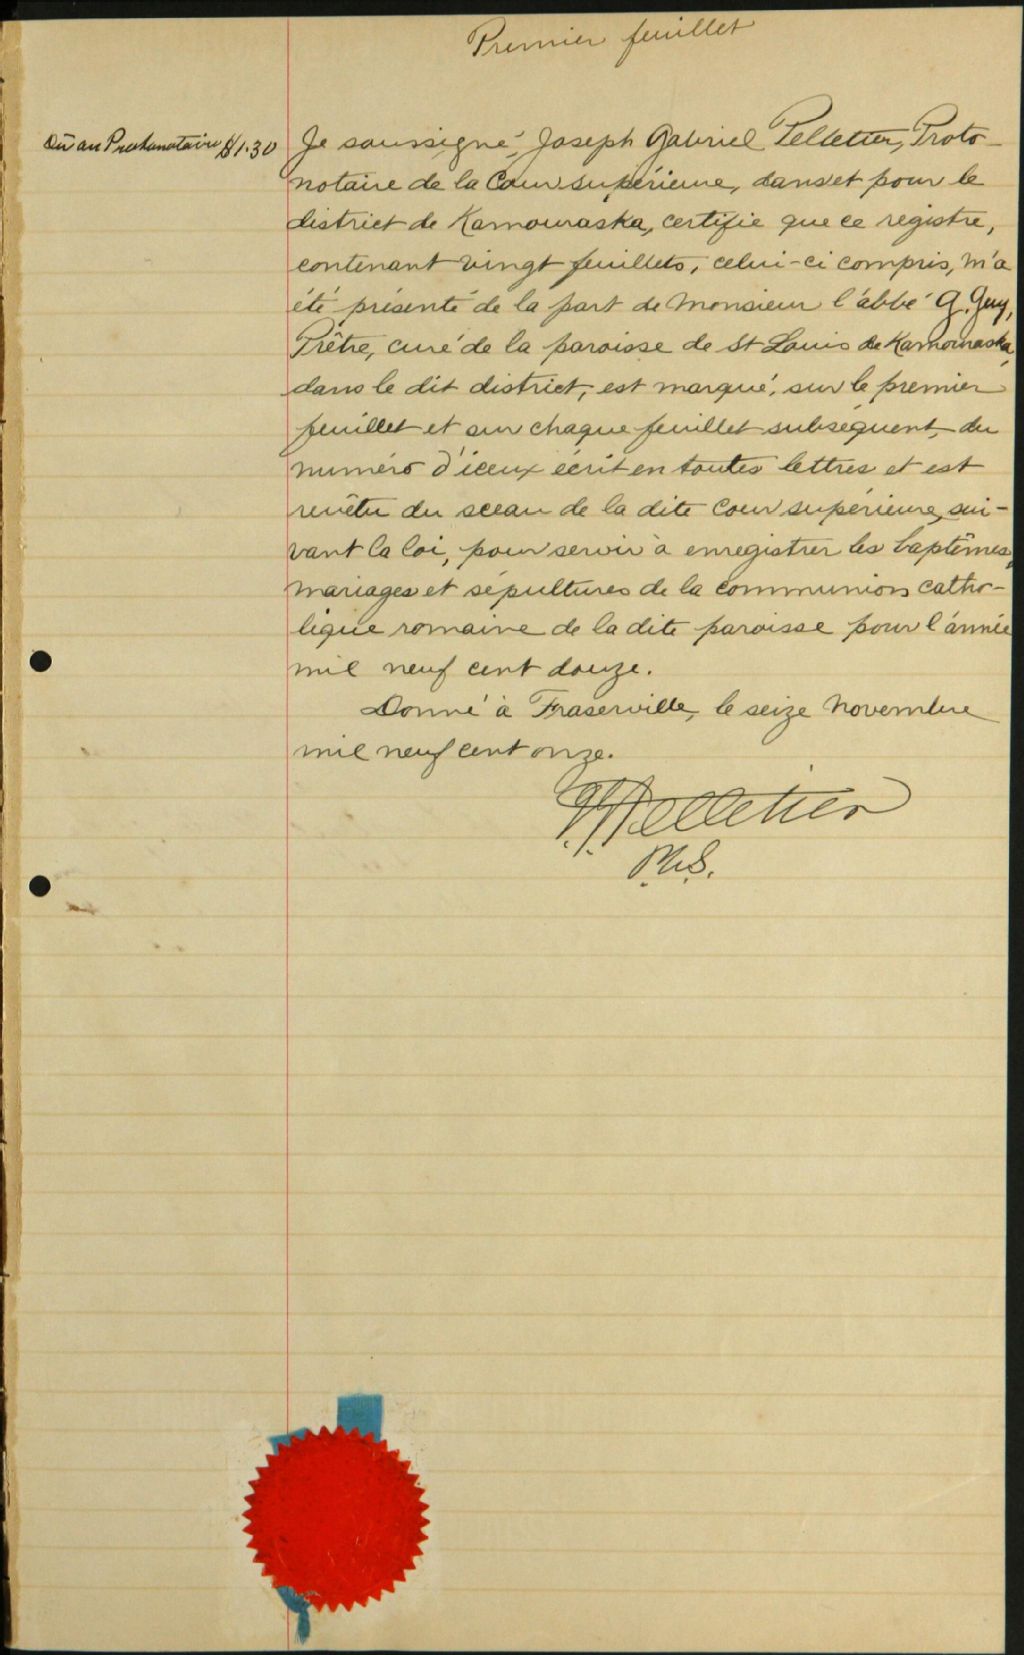 Premier feuillet
Dû au Protonotaire $1.30
Je soussigné, Joseph Gabriel Pelletier, Proto-
notaire de la Cour supérieure, dans et pour le
district de Kamouraska, certifie que ce registre,
contenant vingt feuillets, celui-ci compris, m'a
été présenté de la part de Monsieur l'abbé G. Guy,
Prêtre, curé de la paroisse de St Louis de Kamouraska,
dans le dit district, est marqué, sur le premier
feuillet et sur chaque feuillet subséquent, du
numéro d'iceux écrit en toutes lettres et est
revêtu du sceau de la dite cour supérieure, sui-
vant la loi, pour servir à enregistrer les baptêmes,
mariages et sépultures de la communion catho-
lique romaine de la dite paroisse pour l'année
mil neuf cent douze.
Donné à Fraserville, le seize Novembre
mil neuf cent onze.
J.G. Pelletier
P.C.S.